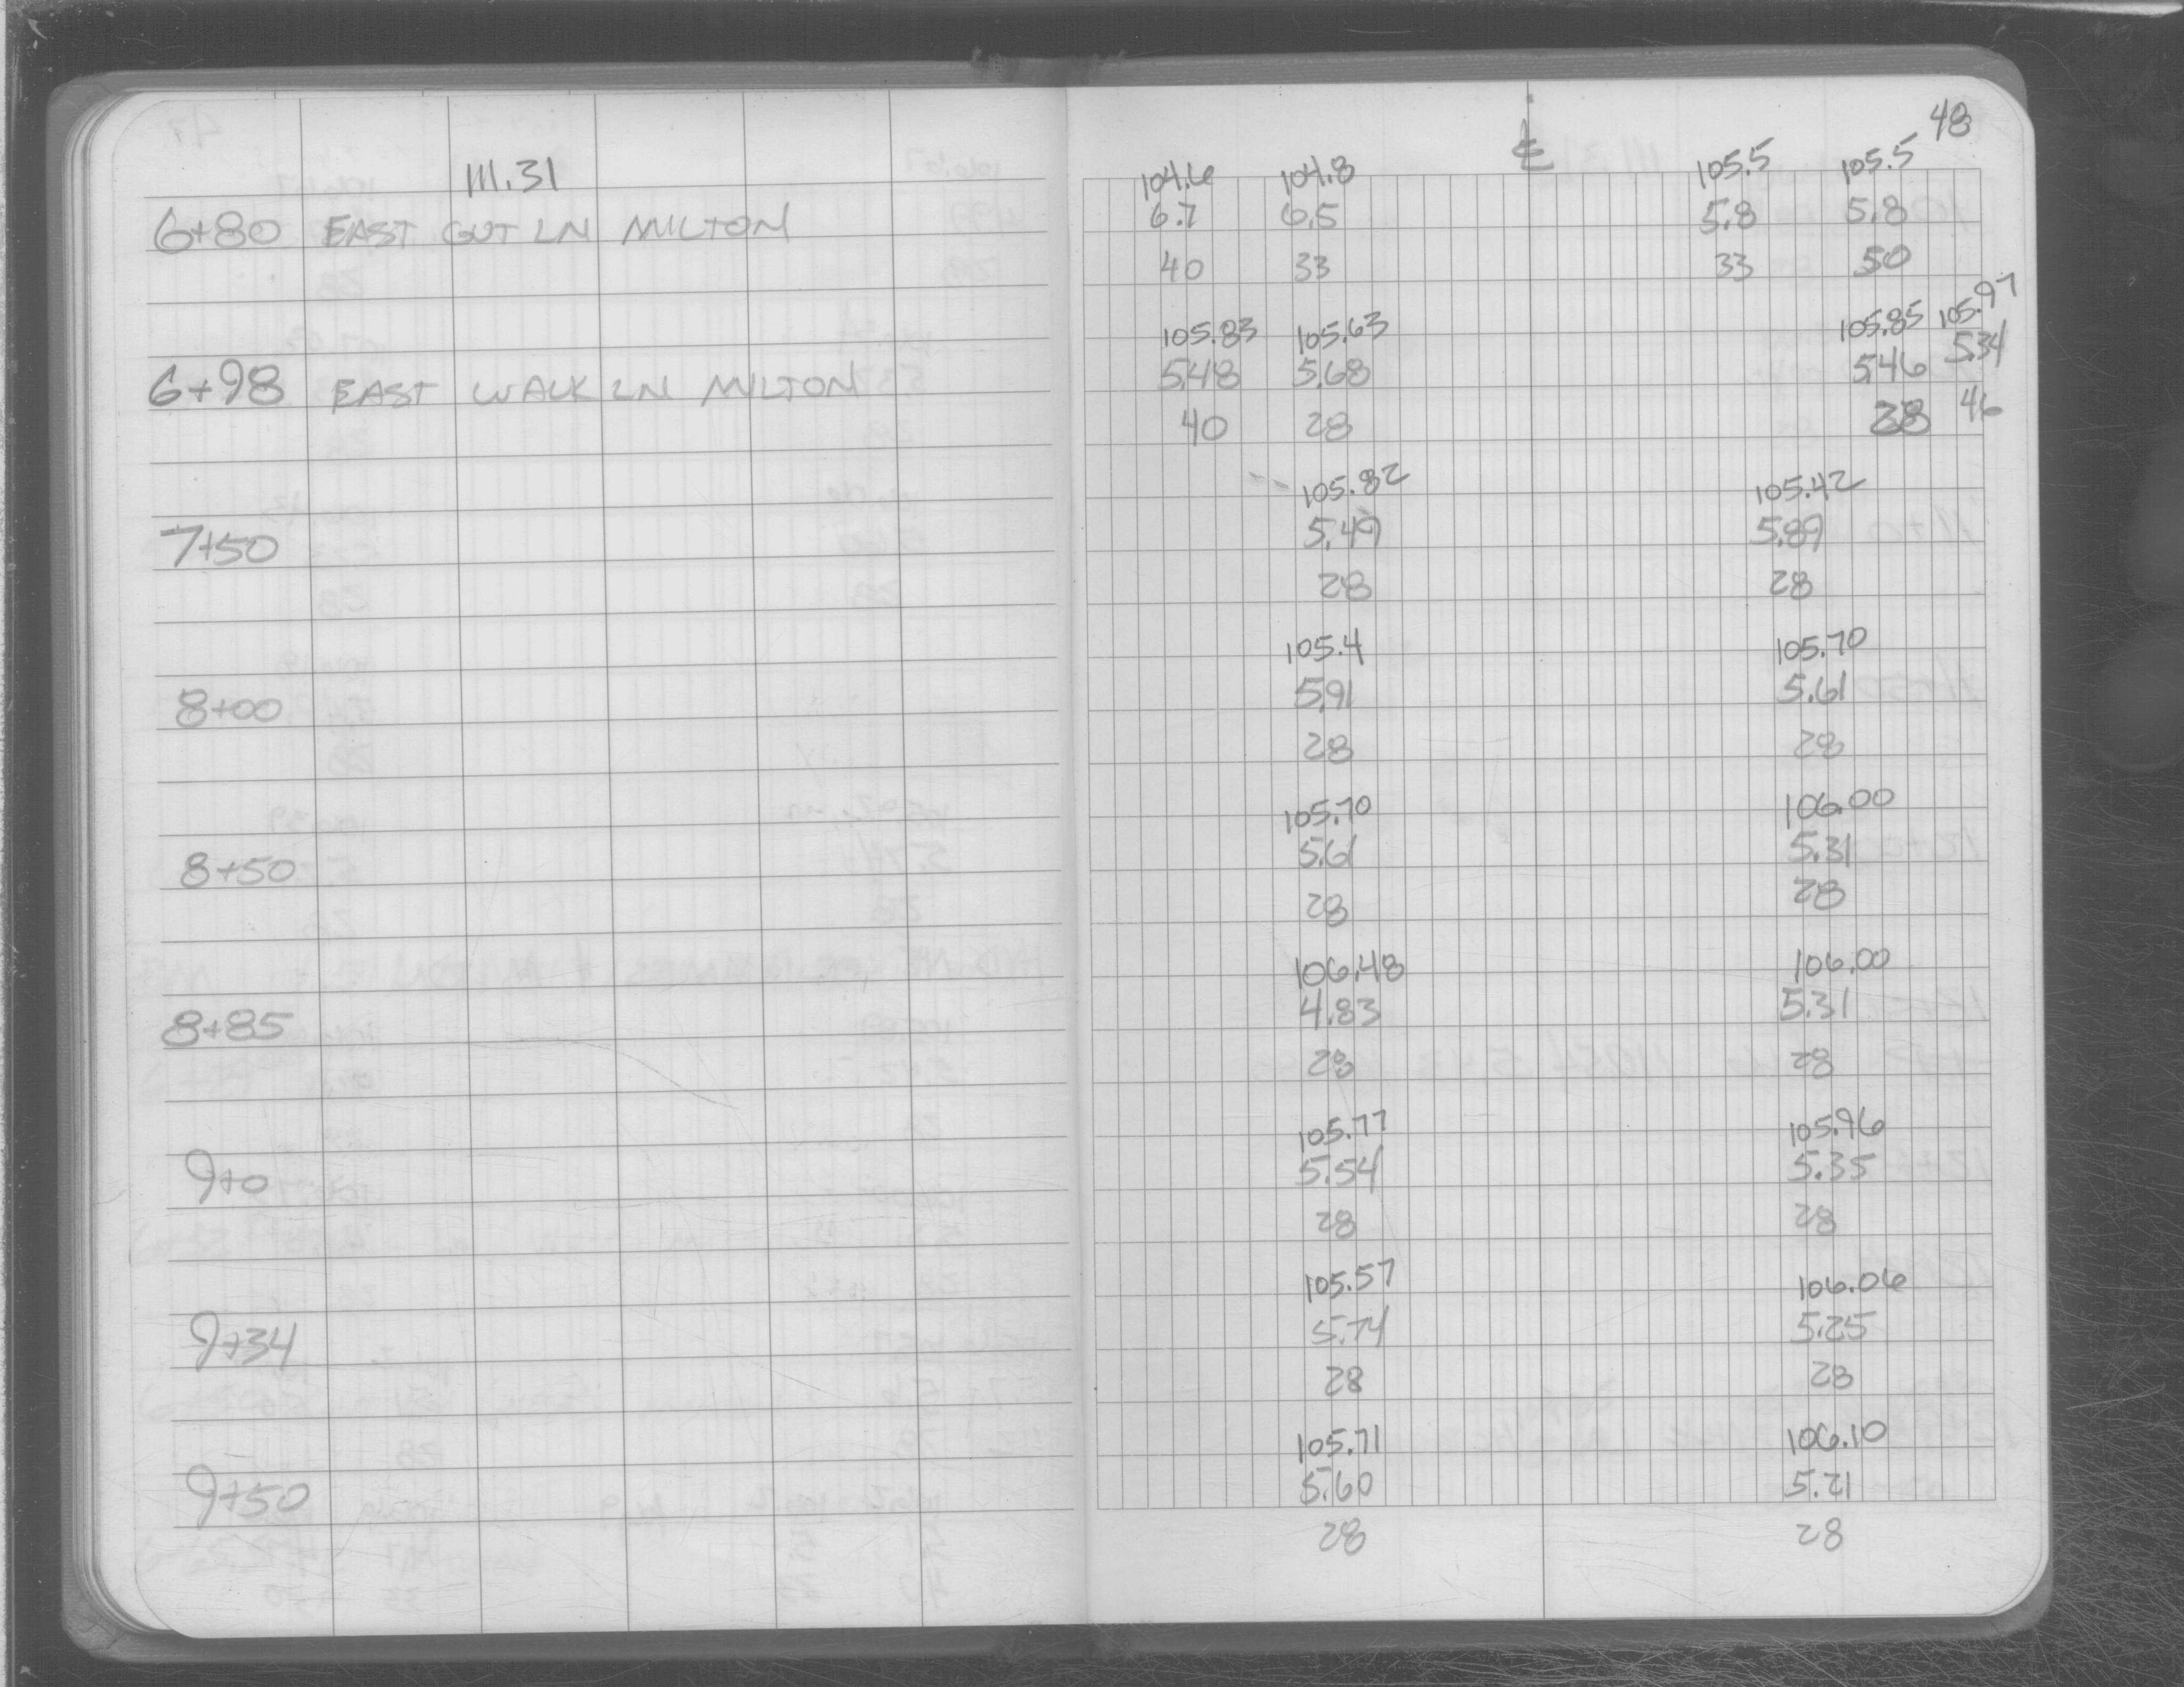 48
111.31
℄
104.6 104.8 105.5 105.5
6+80 EAST GUT LN MILTON 6.7 6.5 5.8 5.8
40 33 33 50
105.83 105.63 105.85 105.97
6+98 EAST WALK LN MILTON 5.48 5.68 5.46 5.34
40 28 28 46
105.82 105.42
7+50 5.49 5.89
28 28
105.4 105.70
8+00 5.91 5.61
28 28
105.70 106.00
8+50 5.61 5.31
28 28
106.48 106.00
8+85 4.83 5.31
28 28
105.77 105.96
9+0 5.54 5.35
28 28
105.57 106.06
9+34 5.74 5.25
28 28
105.71 106.10
9+50 5.60 5.21
28 28